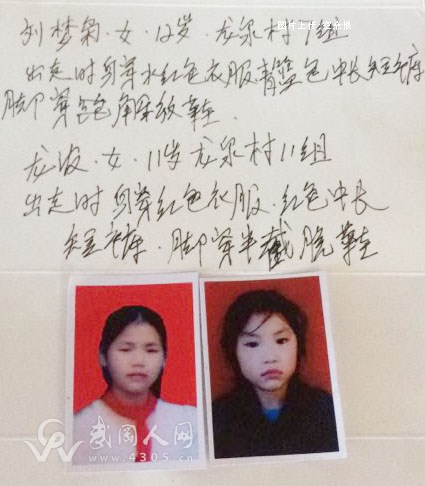 刘梦菊.女.12岁.龙泉村1组
出走时身穿水红色衣服青蓝色中长短裤
脚穿白色解放鞋.
龙波.女.11岁龙泉村11组
出走时身穿红色衣服.红色中长
短裤.脚穿半截脱鞋
武冈人网
www.4305.cn